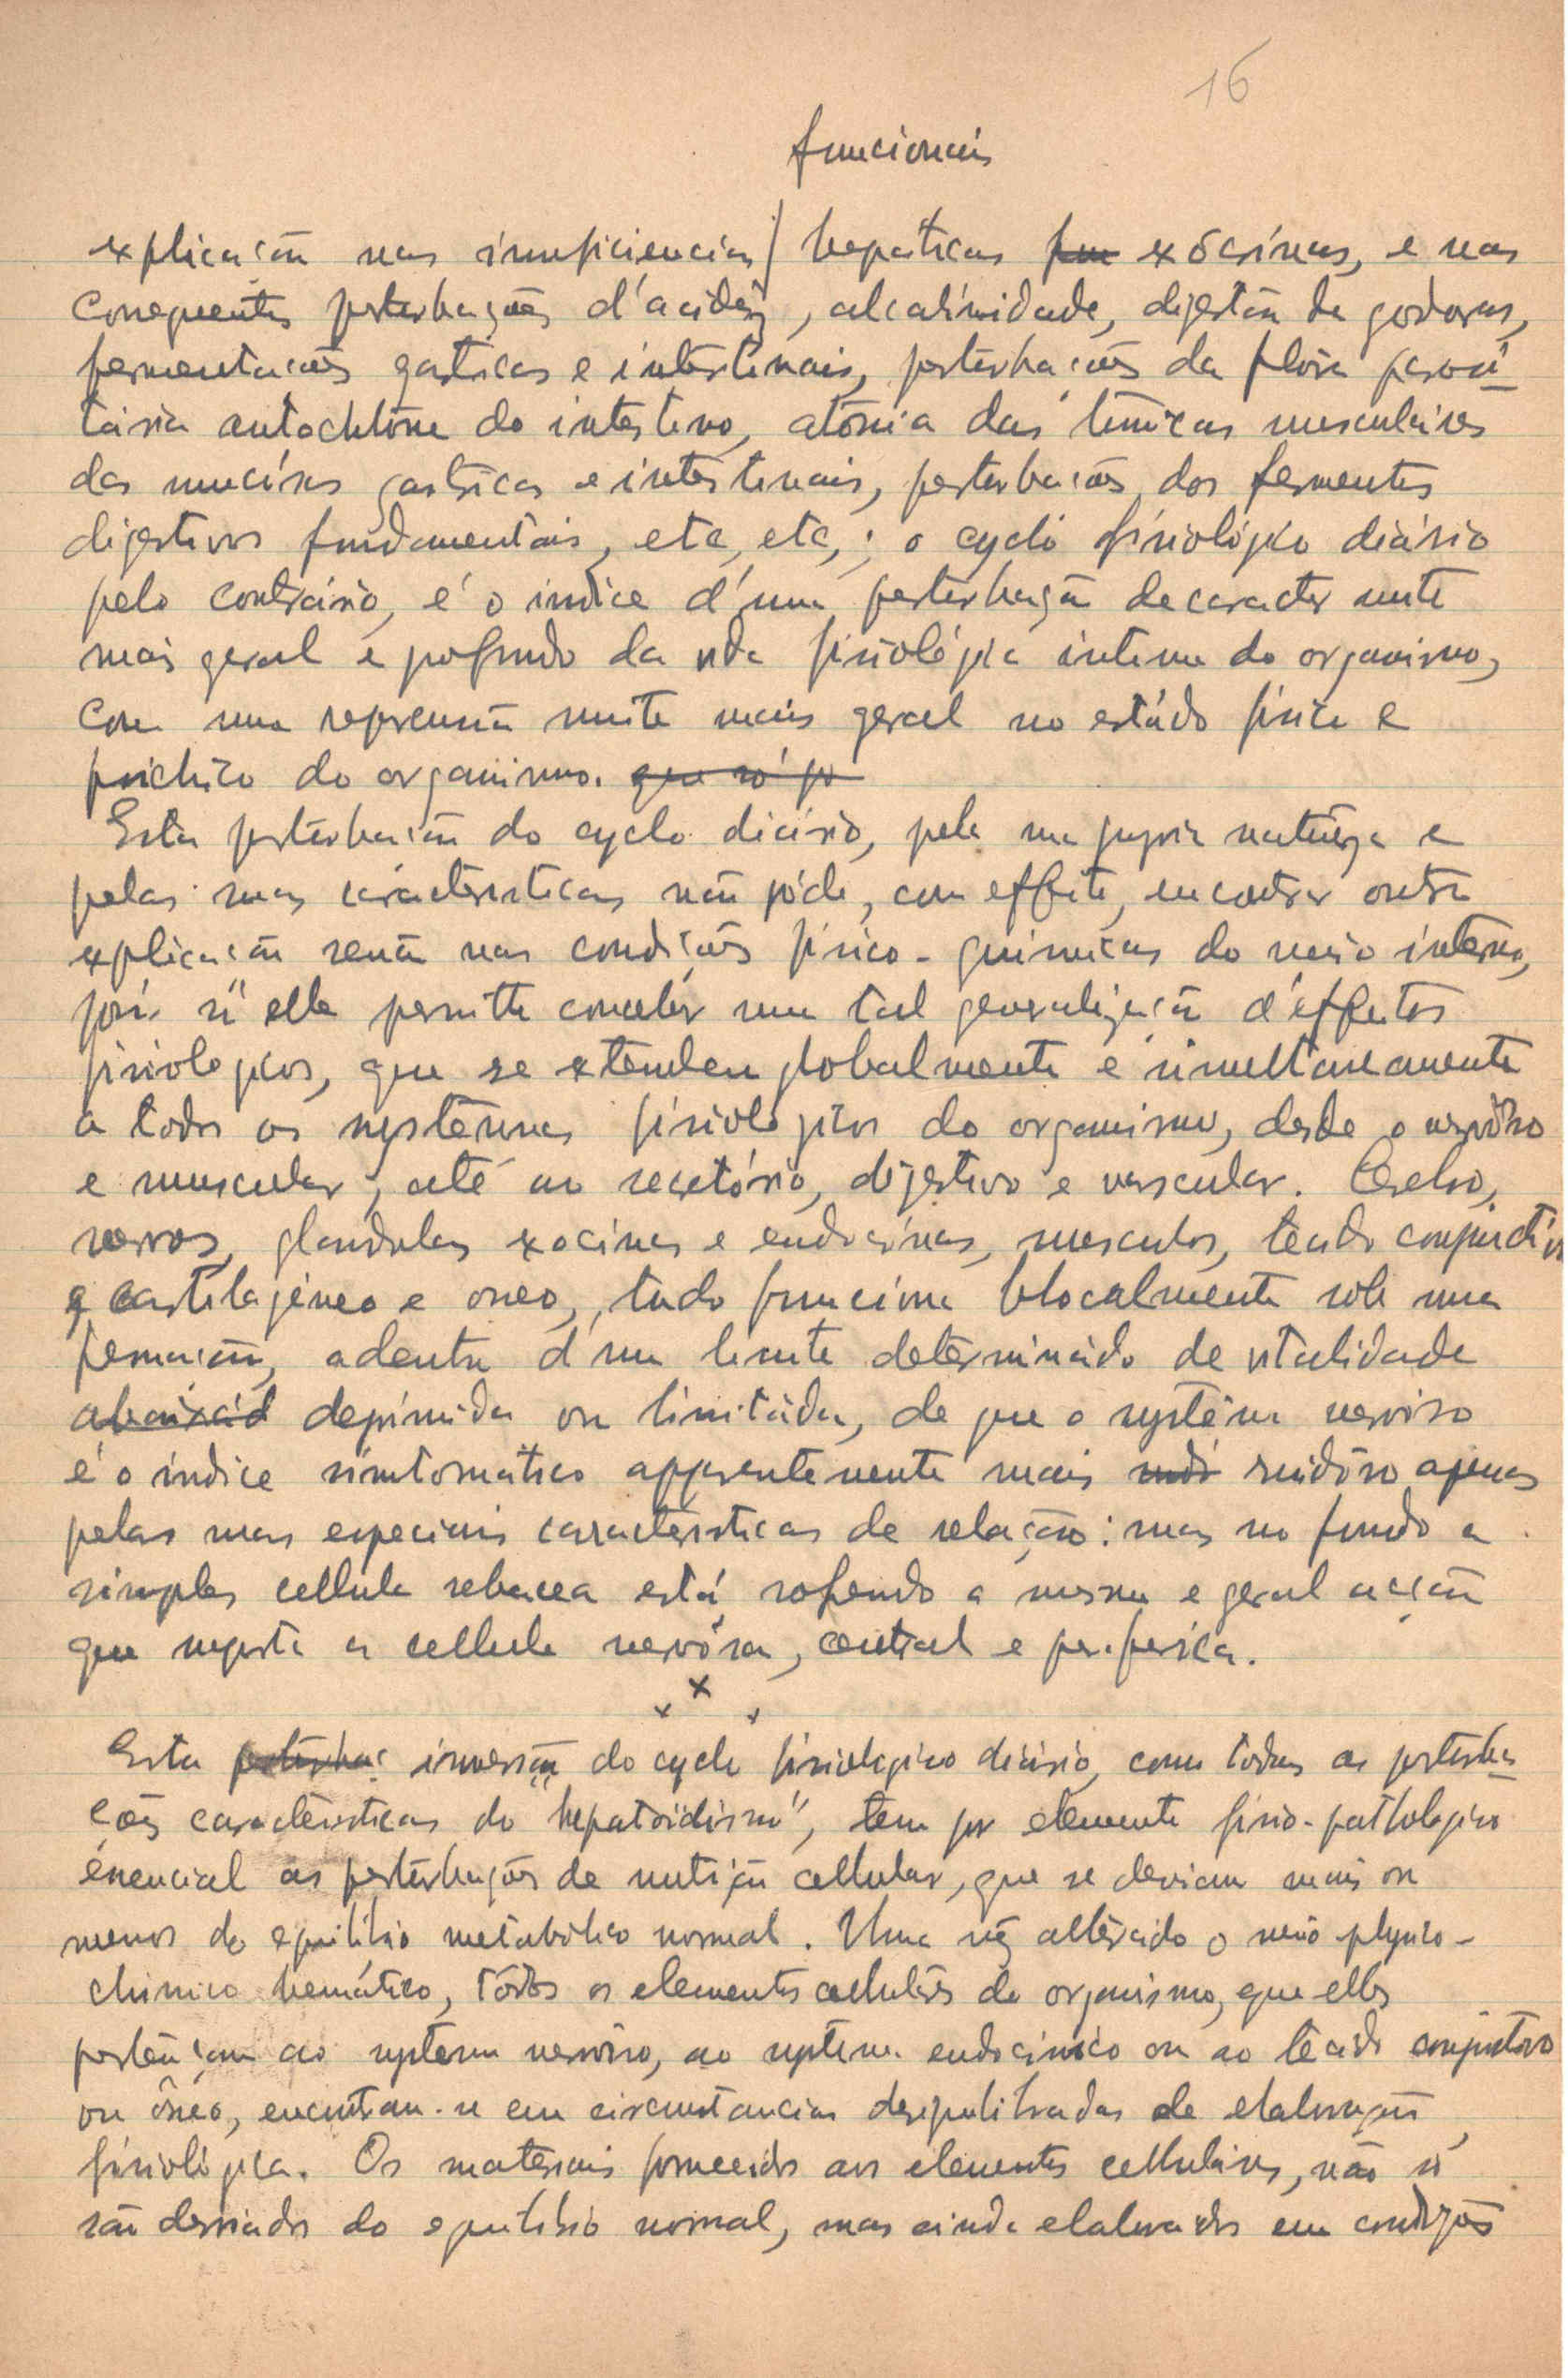 16
funcionais
explicação nas insuficiencias hepaticas fun exócrinas, e nas
consequentes perturbações d'acidêz, alcalinidade, digestão de gorduras,
fermentações gastricas e intestinais, perturbações da flora parasi-
tária autochtóne do intestino, atónia das túnicas musculáres
das mucósas gastricas e intestinais, perturbações dos fermentos
digestivos fundamentais, etc, etc,; o cyclo fisiológico diário
pelo contrário, é o indice d'uma perturbação de caracter muito
mais geral e profundo da vida fisiológica interna do organismo,
com uma repercussão muito mais geral no estádo fisico e
psichico do organismo. que só po
Esta perturbação do cyclo diário, pela sua propria naturêza e
pelas suas carácteristicas não póde, com effeito, encontrar outra
explicação senão nas condições fisico-quimicas do meio interno,
pois só ella permitte concebêr uma tal generalização d'effeitos
fisiologicos, que se extendem globalmente e simultaneamente
a todos os systêmas fisiologicos do organismo, desde o nervôso
e muscular, até ao secretório, digestivo e vascular. Cerebro,
nervos, glandulas exocrinas e endocrinas, musculos, tecido conjunctivo
e cartilagineo e osseo, tudo funciona blocalmente sob uma
sensação, adentro d'um limite determinádo de vitalidade
abaixad deprimida ou limitáda, de que o systêma nervoso
é o indice simtomático apparentemente mais ruidôso apenas
pelas suas especiais caracteristicas de relação: mas no fundo a
simples cellula sebacea está sofrendo a mesma e geral acção
que suporta a cellula nervósa, central e periferica.
x x x
Esta perturbaç inversão do cyclo fisiologico diário, com todas as perturba-
ções caracteristicas do "hepatoidismo", tem por elemento fisio-pathologico
essencial as perturbações de nutrição cellular, que se desviam mais ou
menos do equilibrio metabólico normal. Uma vêz alterádo o meio physico-
chimico hemático, tôdos os elementos cellulares do organismo, que elles
pertençam ao systema nervôso, ao systema endocrinico ou ao tecido conjuntivo
ou ósseo, encontram-se em circunstancias desiquilibradas de elaboração
fisiológica. Os materiais fornecidos aos elementos celluláres, não só
são desviados do equilibrio normal, mas ainda elaborados em condições